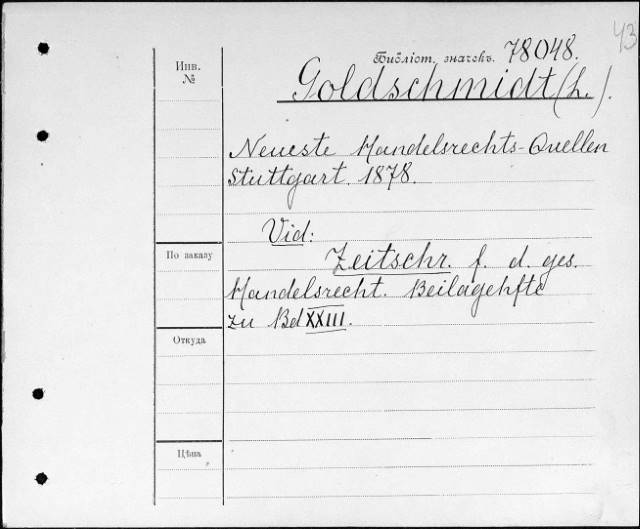 43
Библіот. значекъ. 78048.
Инв.
№
Goldschmidt (L.).
Neueste Handelsrechts-Quellen
Stuttgart. 1878.
Vid:
По заказу
Zeitschr. f. d. ges.
Handelsrecht. Beilagehfte
zu Bd XXIII.
Откуда
Цѣна